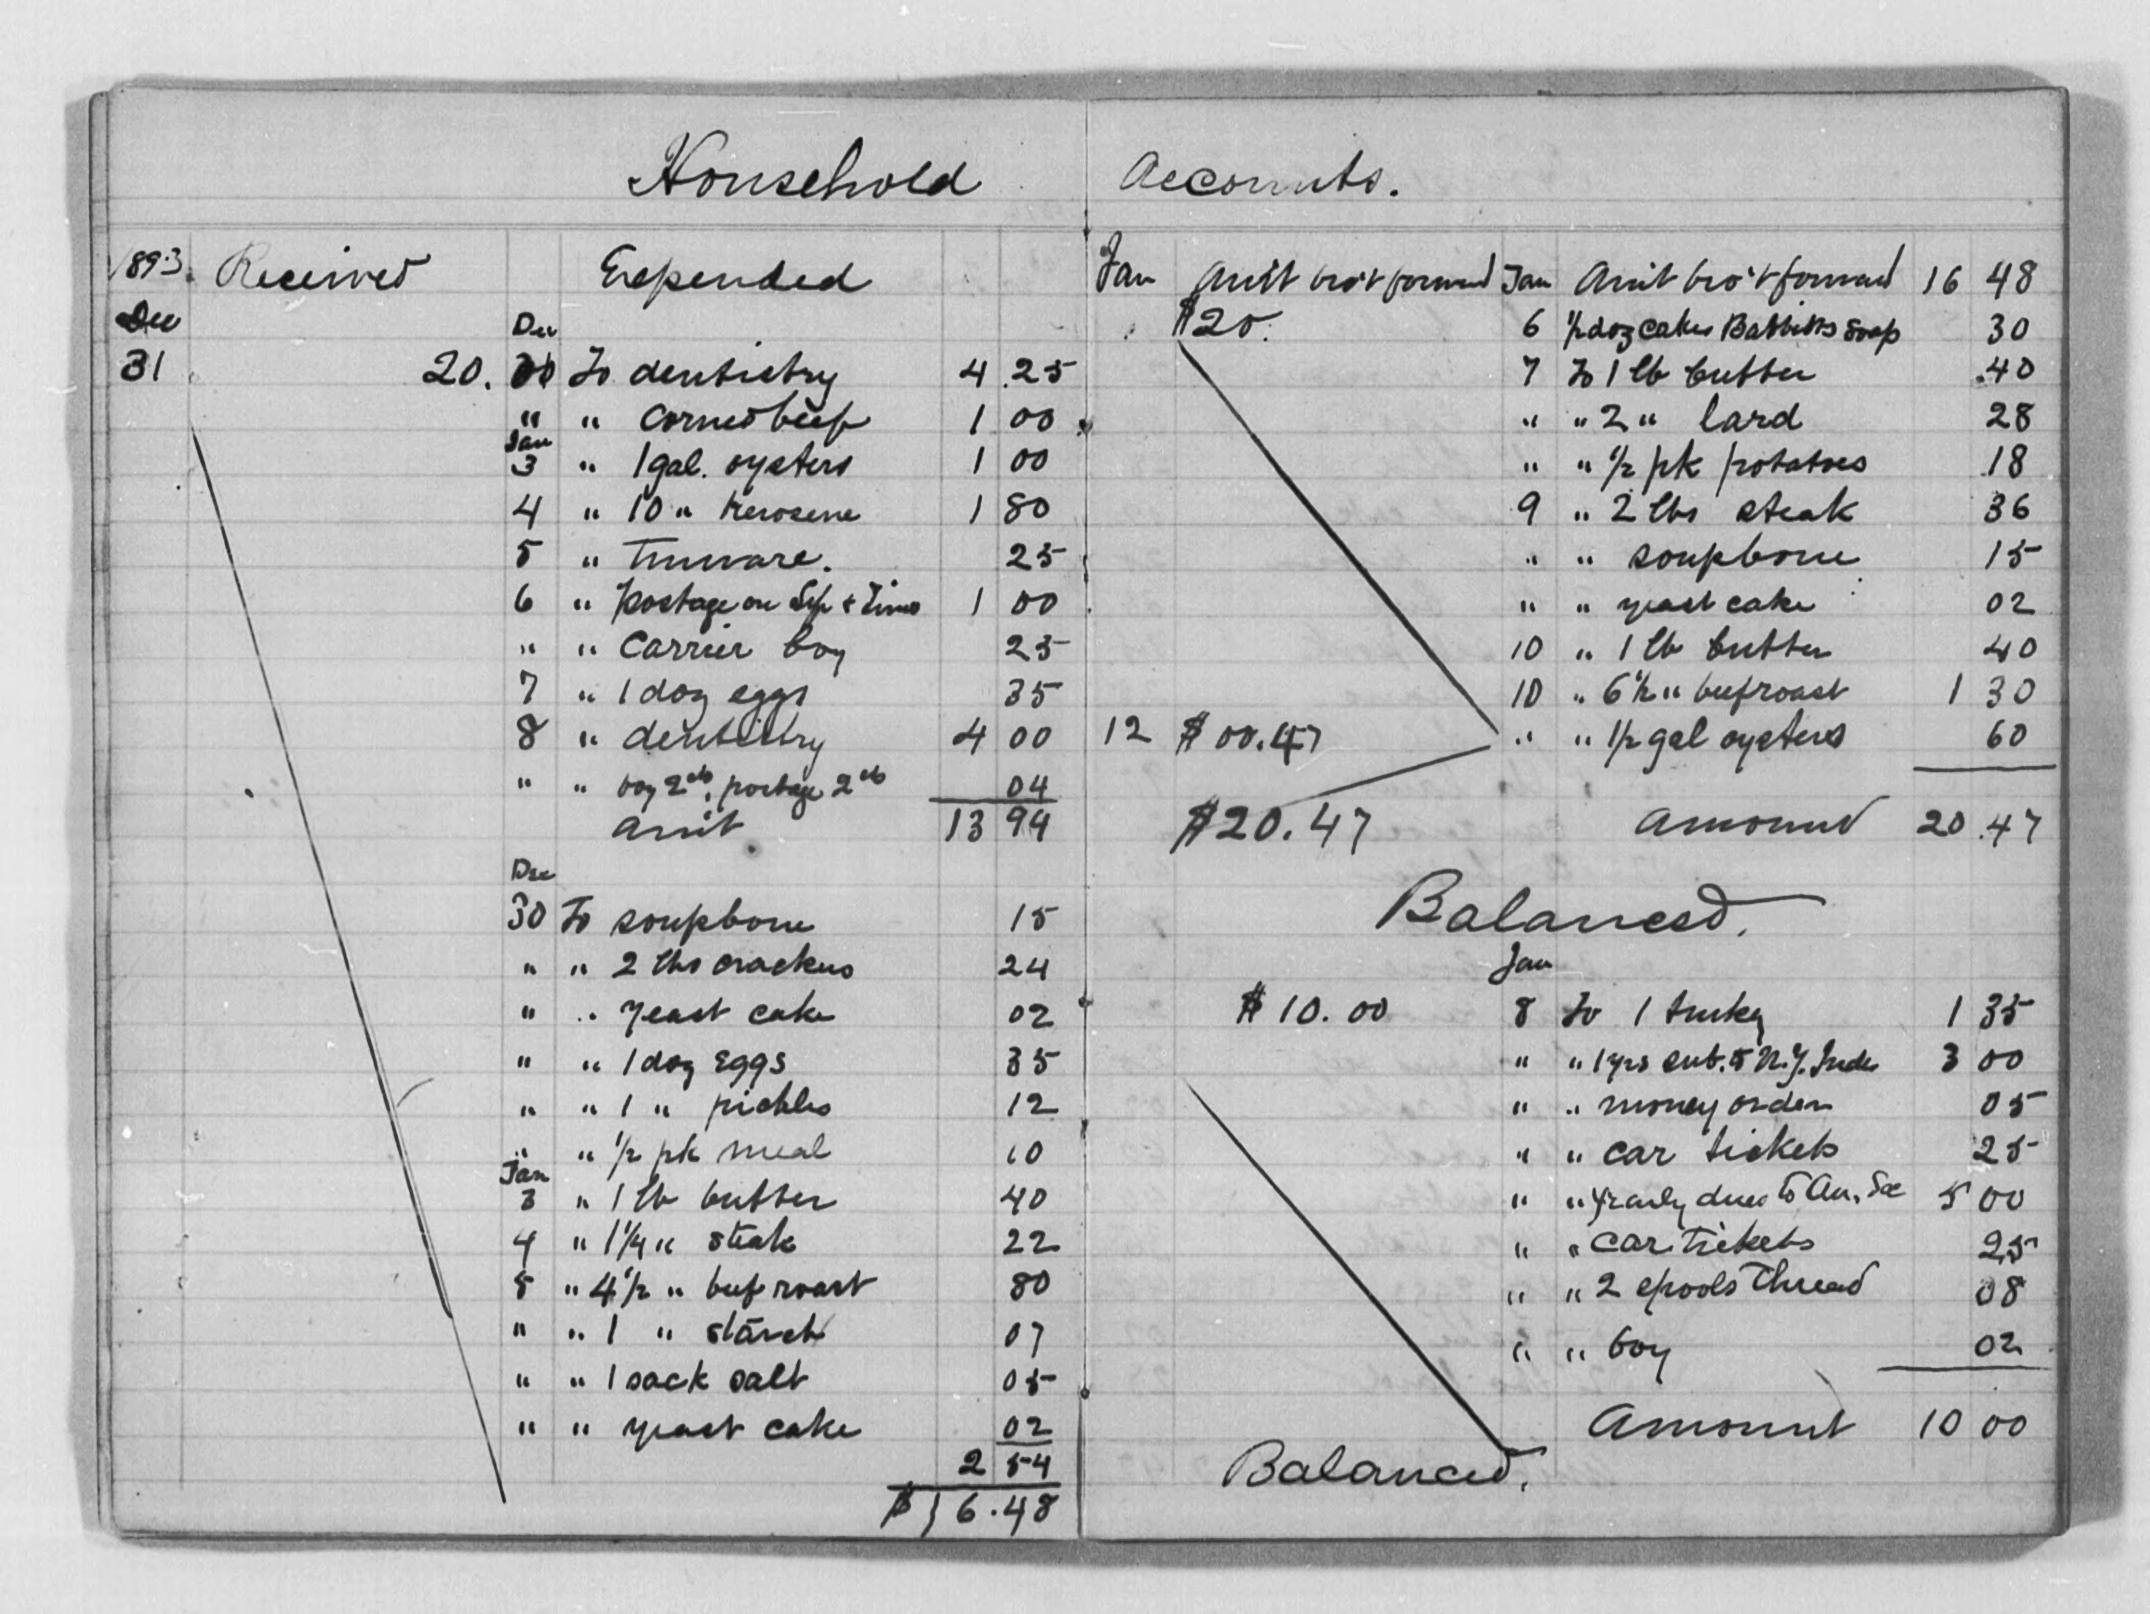 Household Accounts.
1893. Received Expended
Dec Dec
31 20. 30 To dentistry 4.25
" " corned beef 1 00
Jan
3 " 1 gal. oysters 1 00
4 " 10 " Kerosene 1 80
5 " Tinware. 25
6 " Postage on Sep + Times 1 00
" " Carrier boy 25
7 " 1 doz eggs 35
8 " dentistry 4 00
" " boy 2cts, postage 2cts 04
Am't 13 94
Dec
30 To soupbone 15
" " 2 lbs crackers 24
" " Yeast cake 02
" " 1 doz Eggs 35
" " 1 " pickles 12
" " 1/2 pk meal 10
Jan
3 " 1 lb butter 40
4 " 1 1/4 " steak 22
5 " 4 1/2 " beef roast 80
" " 1 " starch 07
" " 1 sack salt 05
" " yeast cake 02
2 54
$16.48
Jan Am't bro't forward Jan Am't bro't forward 16 48
$20. 6 1/2 doz cakes Babbitts Soap 30
7 To 1 lb butter .40
" " 2 " lard 28
" " 1/2 pk potatoes 18
9 " 2 lbs steak 36
" " soupbone 15
" " yeast cake 02
10 " 1 lb butter 40
10 " 6 1/2 " beef roast 1 30
12 $00.47 " " 1/2 gal oysters 60
$20.47 Amount 20.47
Balanced.
Jan
$10.00 8 To 1 turkey 1 35
" " 1 yrs sub. to N.Y. Inde 3 00
" " money order 05
" " car tickets 25
" " yearly dues to An. Soc 5 00
" " car tickets 25
" " 2 spools Thread 08
" " boy 02
Amount 10 00
Balanced.